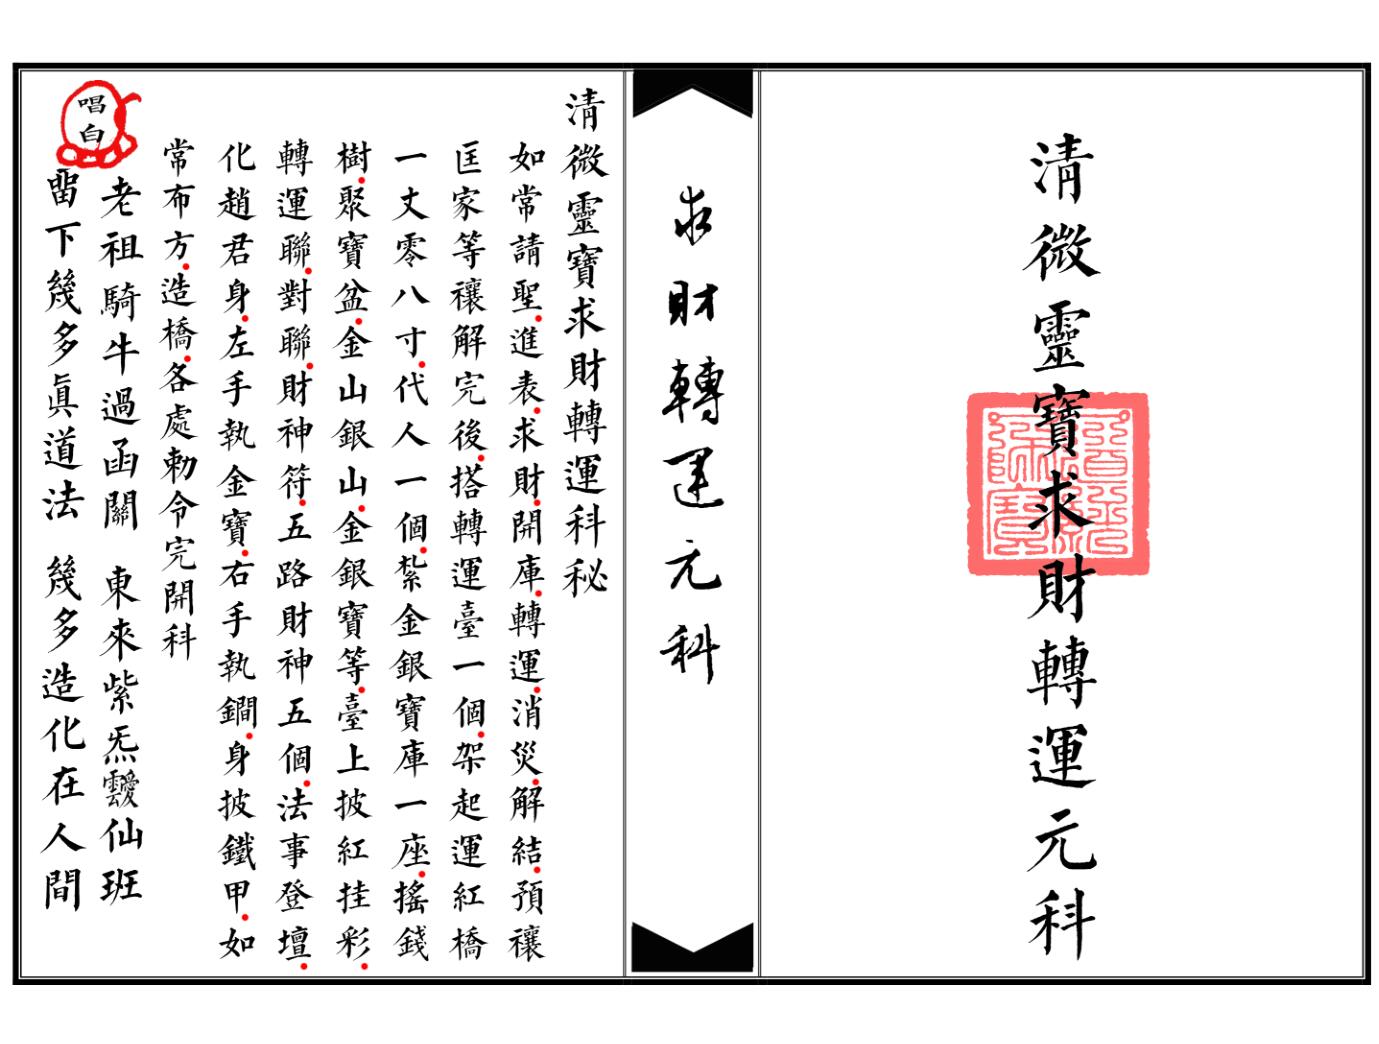 清微靈寶求財轉運元科
求財轉運元科
清微靈寶求財轉運科秘
如常請聖.進表.求財.開庫.轉運.消災.解結.預禳
匡家等禳解完後.搭轉運臺一個.架起運紅橋
一丈零八寸.代人一個.紮金銀寶庫一座.搖錢
樹.聚寶盆.金山銀山.金銀寶等.臺上披紅挂彩.
轉運聯.對聯.財神符.五路財神五個.法事登壇.
化趙君身.左手執金寶.右手執鐧.身披鐵甲.如
常布方.造橋.各處勅令完開科
唱白
老祖騎牛過函關 東來紫炁靉仙班
畱下幾多眞道法 幾多造化在人間